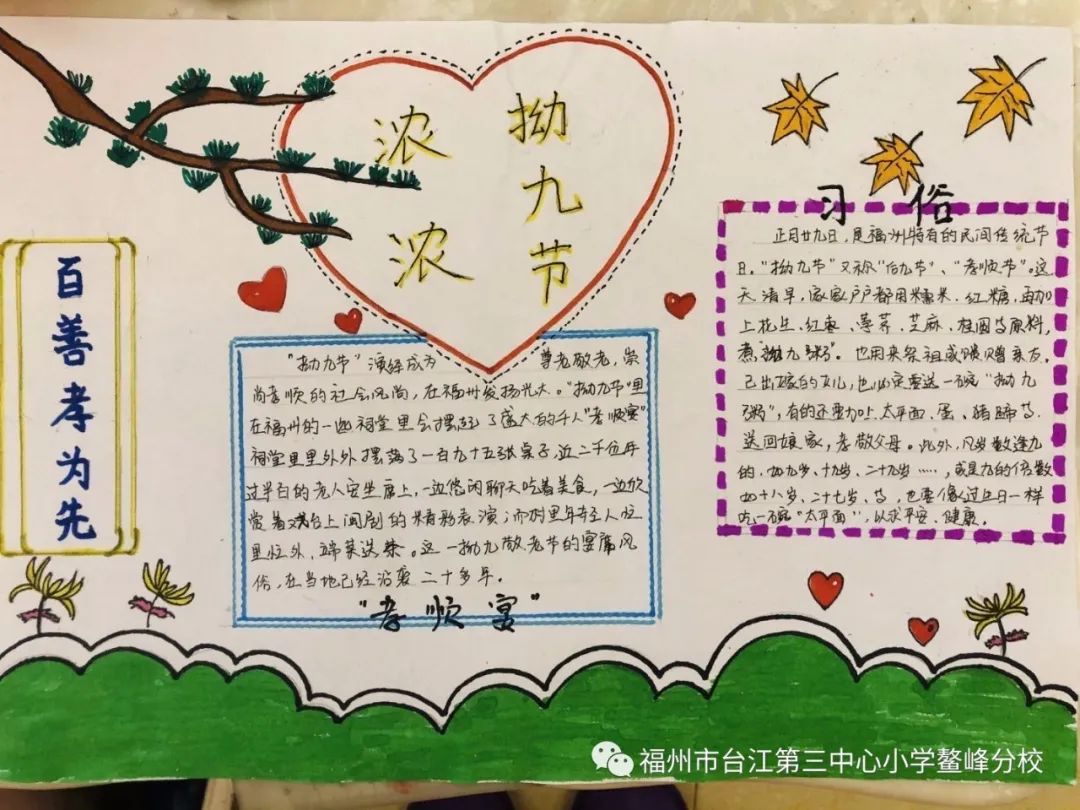 浓浓
拗九节
百善孝为先
习俗
正月廿九日，是福州特有的民间传统节
日。"拗九节"又称"后九节"、"孝顺节"。这
天清早，家家户户都用糯米、红糖，再加
上花生、红枣、荸荠、芝麻、桂圆等原料，
煮"拗九粥"。也用来祭祖或馈赠亲友。
已出嫁的女儿，也必定要送一碗"拗九
粥"，有的还要加上太平面、蛋、猪蹄等，
送回娘家，孝敬父母。此外，凡岁数逢九
的，如九岁、十九岁、二十九岁……，或是九的倍数
如十八岁、二十七岁、等，也要像过正日一样
吃一碗"太平面"，以求平安、健康。
"拗九节"演绎成为 尊老敬老，崇
尚孝顺的社会风尚，在福州发扬光大。"拗九节"里
在福州的一些祠堂里会摆起了盛大的千人"孝顺宴"
祠堂里里外外摆落了一百九十五张桌子，近二千位年
过半百的老人安坐席上，一边悠闲聊天吃着美食，一边欣
赏着戏台上闽剧的精彩表演；而村里年轻人忙
里忙外，端菜送茶。这一拗九敬老节的宴席风
俗，在当地已经沿袭二十多年。
"孝顺宴"
福州市台江第三中心小学鳌峰分校